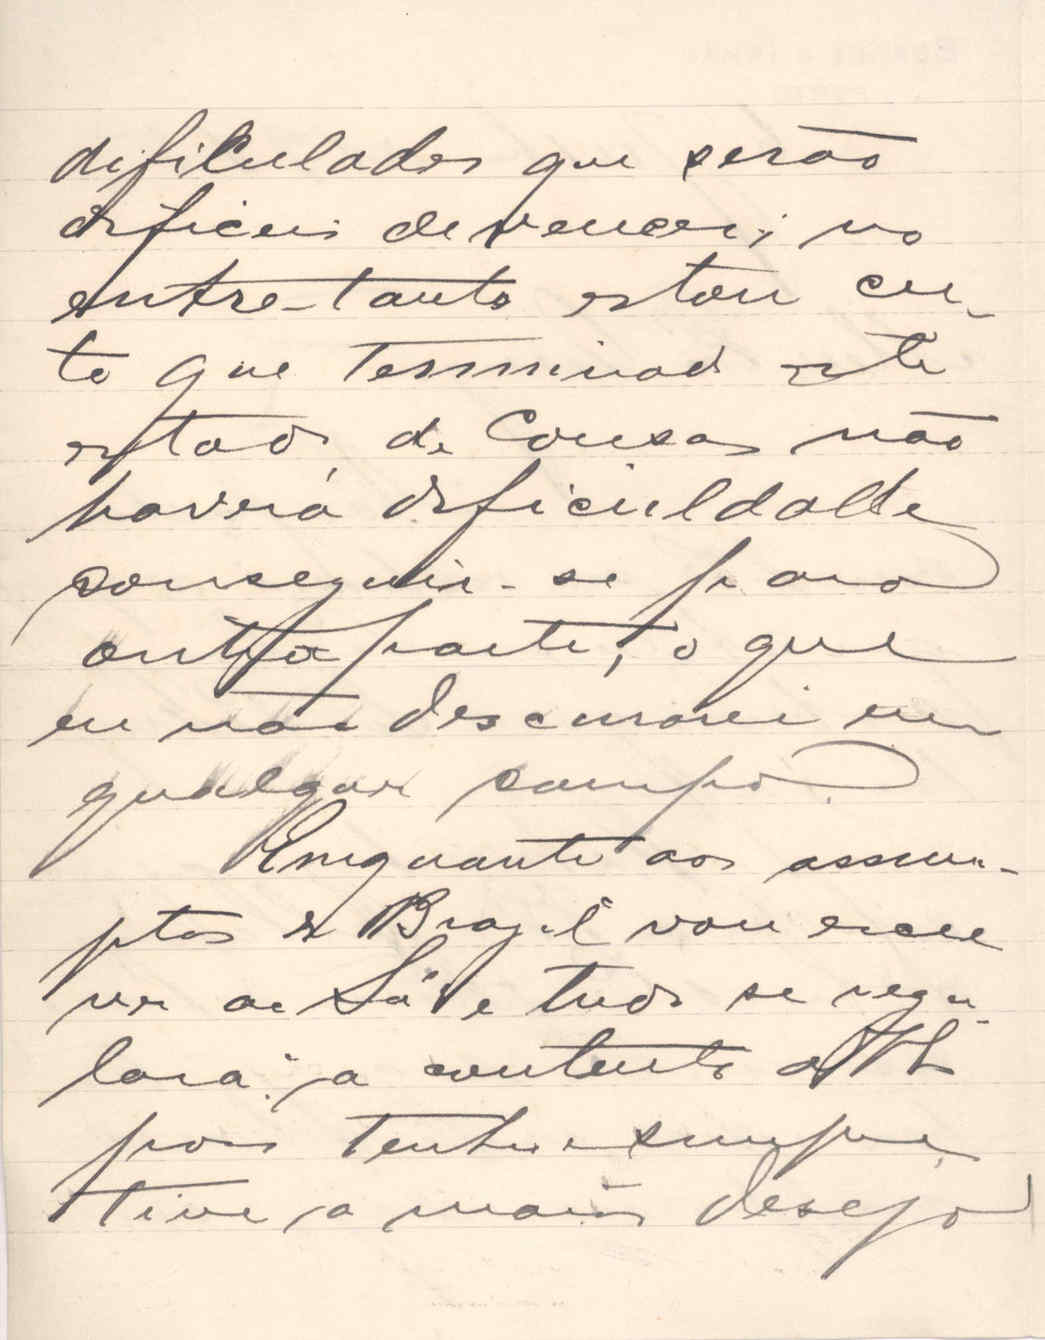 dificulades que serão
dificeis de vencer; no
entre-tanto estou cer-
to que terminado este
estado de cousas não
haverá dificuldade
conseguir-se para
outra parte, o que
eu não descurarei em
qualquer campo.
Emquanto aos assum-
ptos do Brazil vou escre
ver ao Sá e tudo se regu-
lará a contento
pois tenho e sempre
tive o maior desejo